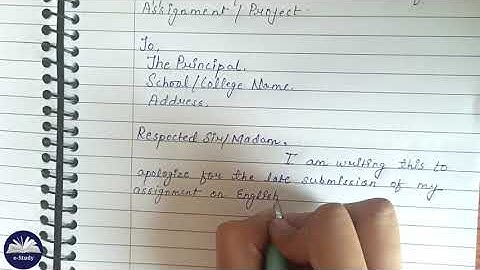 Assignment / Project
To,
The Principal.
School/College Name.
Address.
Respected Sir/Madam.
I am writing this to
apologize for the late submission of my
assignment on English
e-Study